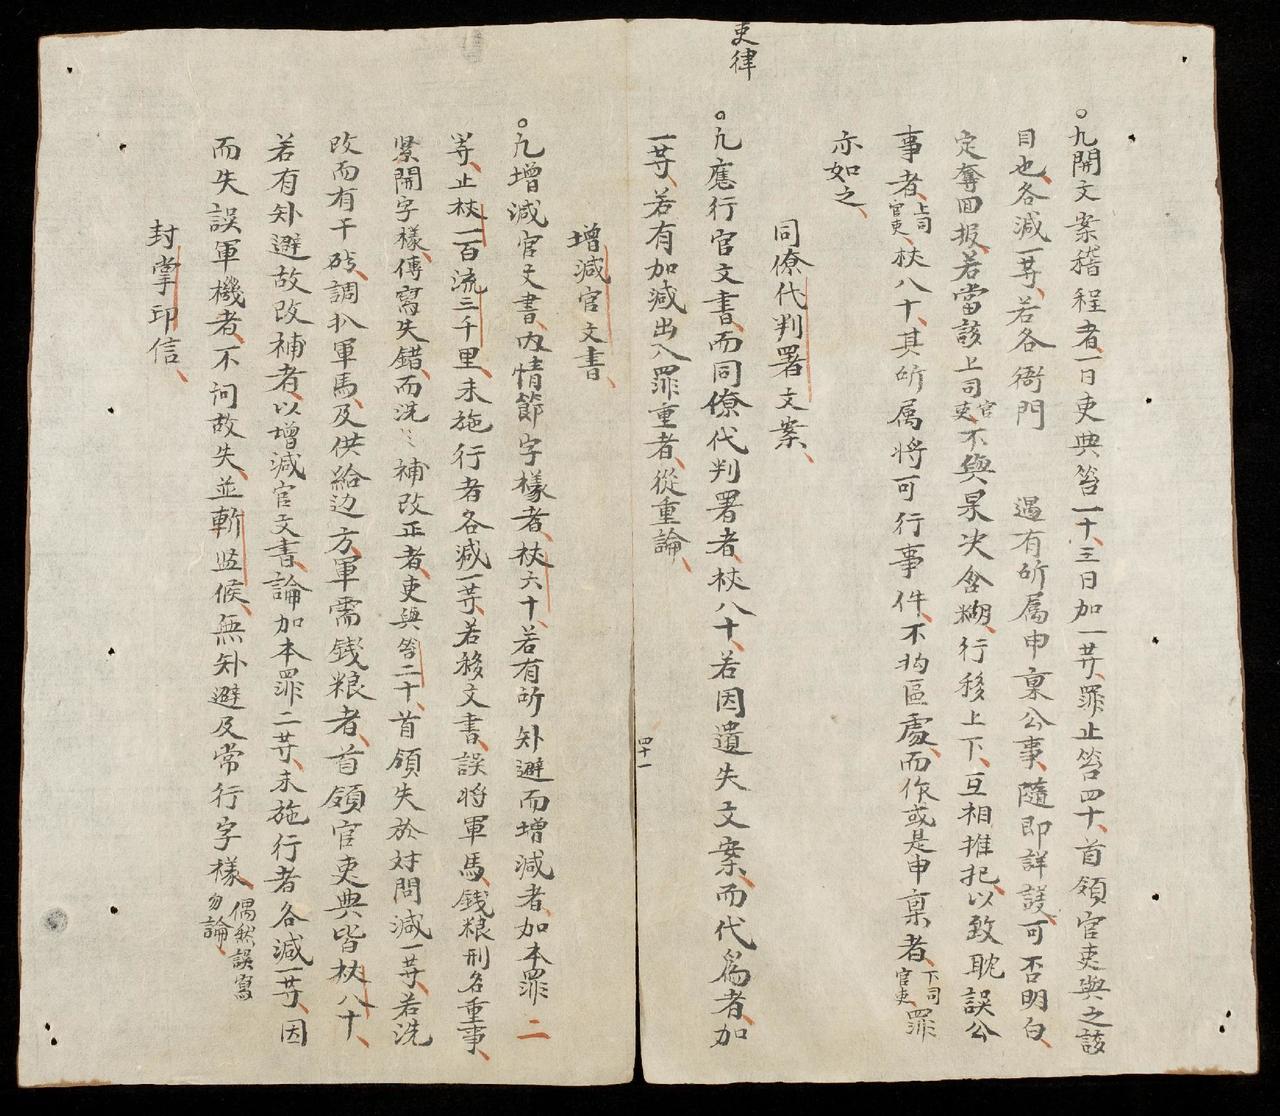 吏律
○凡開文案稽程者一日吏典笞一十、三日加一等、罪止笞四十、首領官吏典之該
目也、各減一等、若各衙門 遇有所属申稟公事、隨即詳議可否明白、
定奪回报、若當該上司官吏、不與杲决含糊、行移上下、互相推把、以致耽誤公
事者、上司官吏、杖八十、其所属将可行事件、不拘區處、而作或是申稟者、下司官吏罪
亦如之、
同僚代判署文案、
○凡應行官文書、而同僚代判署者、杖八十、若因遺失文案、而代為者、加
一等、若有加減出入罪重者、從重論、
四十一
增減官文書、
○凡增減官文書、内情節字樣者、杖六十、若有所䂠避而增減者、加本罪二
等、止杖一百流三千里、未施行者各減一等、若移文書、誤将軍馬、銭粮刑名重事、
緊開字樣、傳寫失錯、而洗〻補改正者、吏與笞二十、首領失於対問減一等、若洗
改而有干碍、調扒軍馬、及供給边方、軍需銭粮者、首領官吏典皆杖八十、
若有䂠避故改補者、以增減官文書、論加本罪二等、未施行者各減一等、因
而失誤軍機者、不问故失、並斬监候、無䂠避及常行字樣、偶然誤寫勿論、
封掌印信、